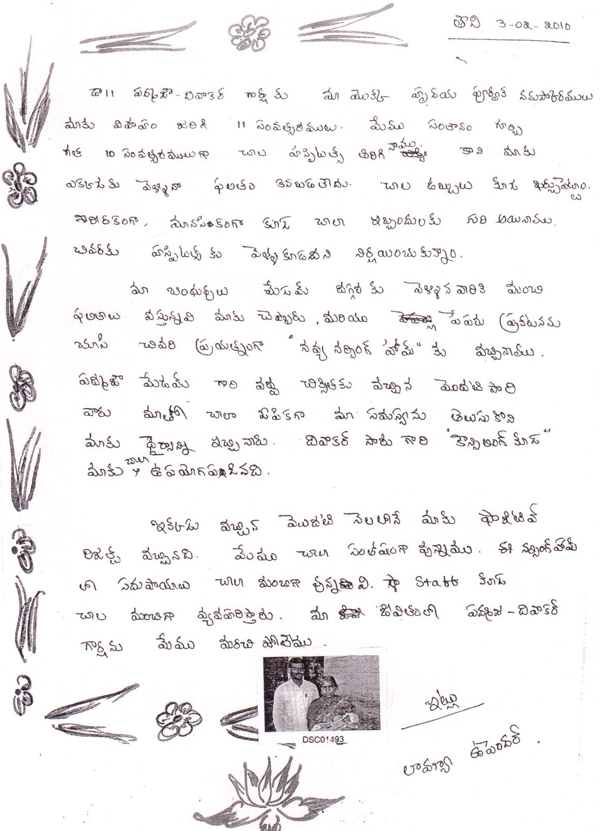 తేది 3-02-2010
డా|| పద్మజ-దివాకర్ గార్కి కు మా యొక్క హృదయ పూర్వక నమస్కారములు
మాకు వివాహం జరిగి 11 సంవత్సరములు. మేము సంతానం గూర్చి
గత 10 సంవత్సరములుగా చాల హస్పిటల్స్ తిరిగి నాము. కాని మాకు
ఎక్కడకు వెళ్ళినా ఫలితం కనబడుతలేదు. చాల డబ్బులు కూడ ఖర్చుపెట్టాం.
శారీరకంగా, మానసికంగా కూడ చాలా ఇబ్బందులకు గురి అయినాము.
చివరకు హస్పిటల్స్ కు వెళ్ళకూడదని నిర్ణయించుకున్నాం.
మా బంధువులు మేడమ్ దగ్గర కు వెళ్ళిన వారికి మంచి
ఫలితాలు వస్తున్నవి మాకు చెప్పారు, మరియు పేపరు ప్రకటనను
చూసి చివరి ప్రయత్నంగా "నవ్య నర్సింగ్ హోమ్" కు వచ్చినాము.
పద్మజ మేడమ్ గారి వద్ద చికిత్సకు వచ్చిన మొదటి సారి
వారు మాతో చాలా ఓపికగా మా సమస్యను తెలుసుకొని
మాకు ధైర్యాన్ని ఇచ్చినారు. దివాకర్ సారు గారి "కౌన్సిలింగ్ కూడ"
మాకు చాలా ఉపయోగపడినది.
ఇక్కడకు వచ్చిన మొదటి నెలలోనే మాకు పాజిటివ్
రిజల్ట్ వచ్చినది. మేము చాల సంతోషంగా వున్నాము. ఈ నర్సింగ్ హోమ్
లో సదుపాయాలు చాల మంచిగా వున్నవి. Staff కూడ
చాల మంచిగా వ్యవహరిస్తారు. మా జీవితంలో పద్మజ-దివాకర్
గార్కిను మేము మరచి పోలేము.
DSC01493
ఇట్లు
లావణ్య ఉపేందర్.